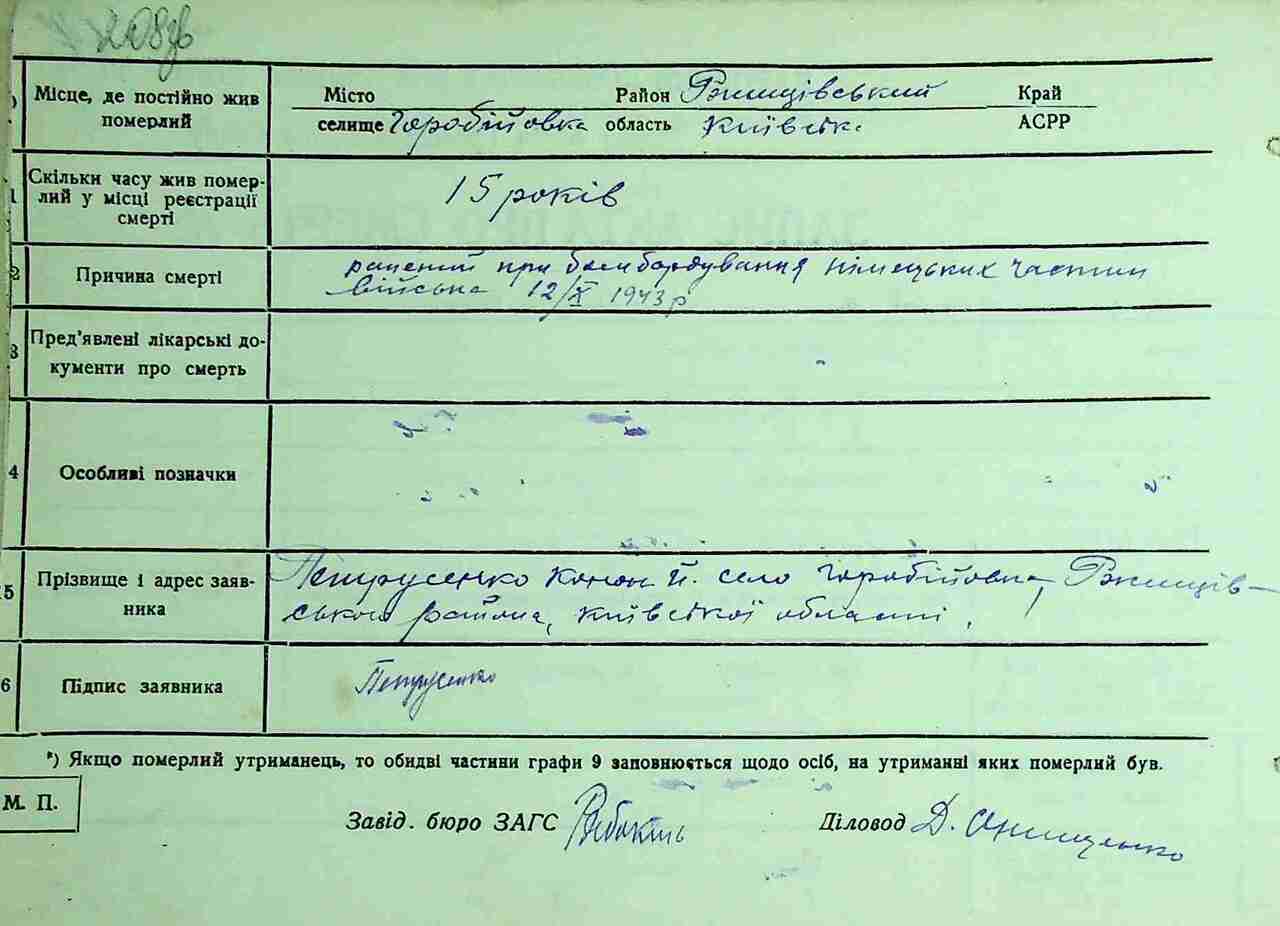 208зв
Місце, де постійно жив померлий
Місто Район Ржищівський Край
селище Горобійовка область Київськ. АСРР
1 Скільки часу жив помер-
лий у місці реєстрації
смерті
15 років
2 Причина смерті
ранений при бомбордування німецьких частин
війська 12/X 1943 р
3 Пред'явлені лікарські до-
кументи про смерть
4 Особливі позначки
5 Прізвище і адрес заяв-
ника
Петрусенко Конон Й. село Горобійовка, Ржищів-
ського района, Київської області.
6 Підпис заявника Петрусенко
*) Якщо померлий утриманець, то обидві частини графи 9 заповнюється щодо осіб, на утриманні яких померлий був.
М. П.
Завід. бюро ЗАГС Діловод Д. Онищенко